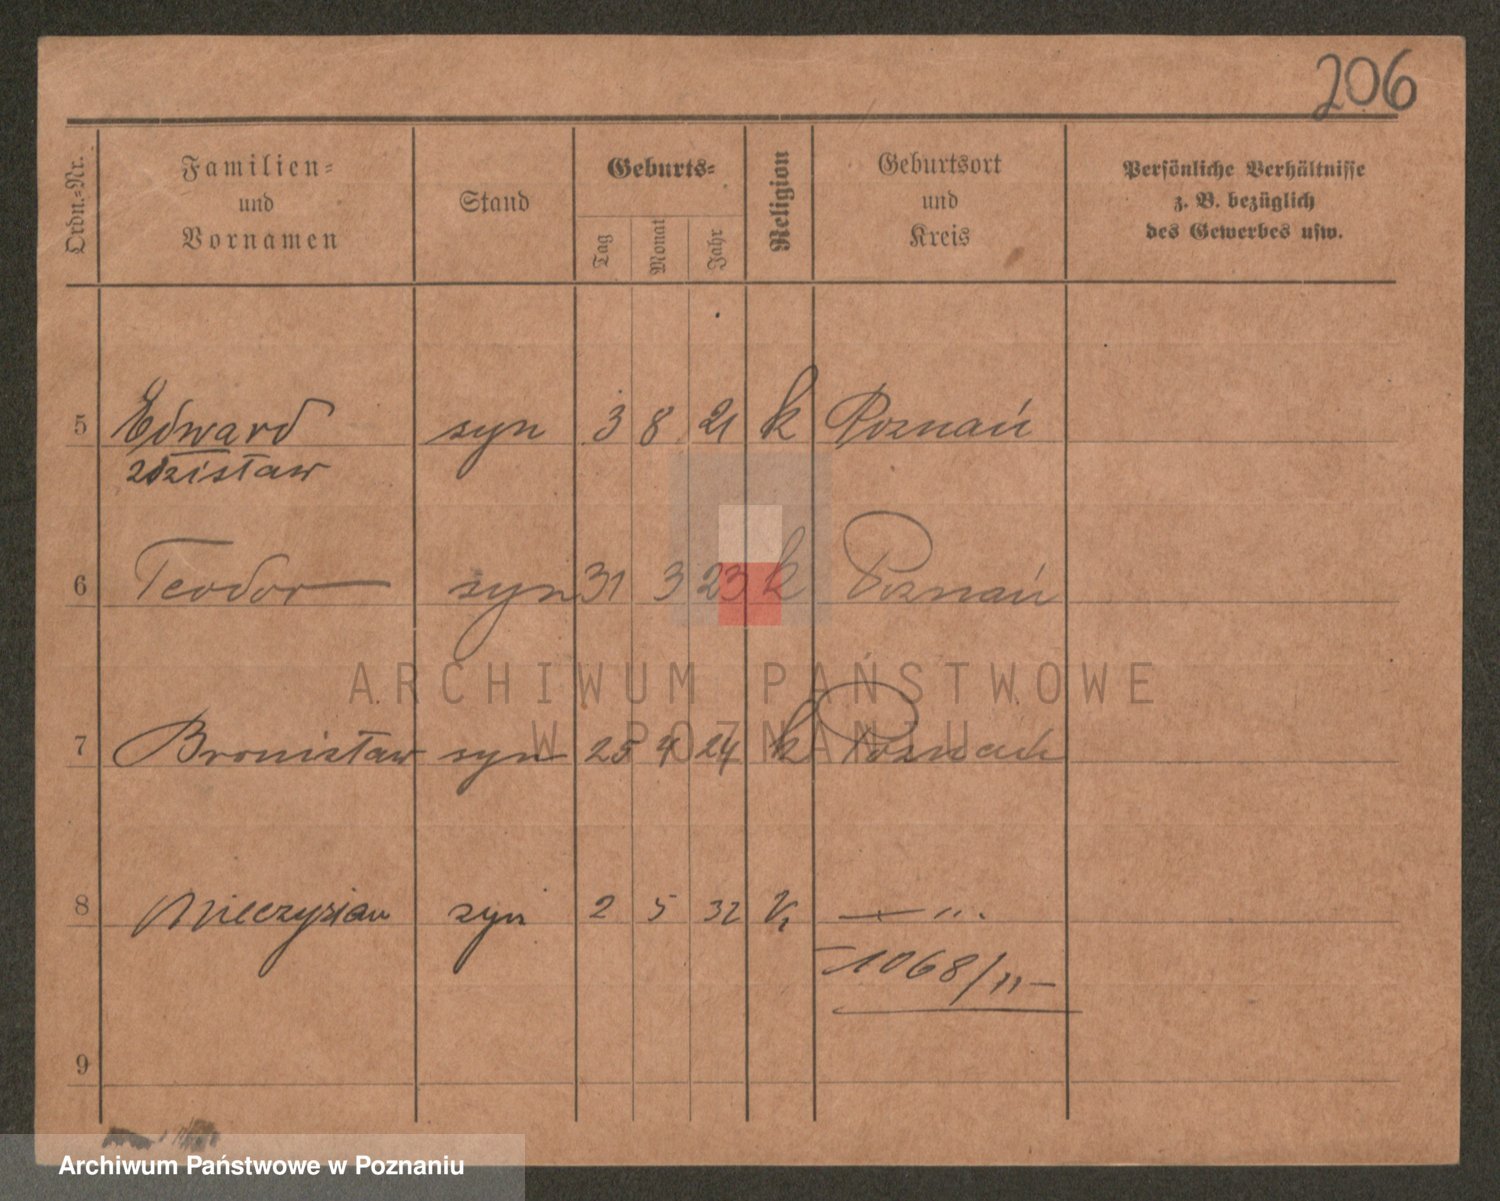 206
Ordn.-Nr. Familien- und Vornamen Stand Geburts- Tag Monat Jahr Religion Geburtsort und Kreis Persönliche Verhältnisse z. B. bezüglich des Gewerbes usw.
5 Edward syn 3 8 21 k Poznań
Zdzisław
6 Teodor syn 31 3 23 k Poznań
ARCHIWUM PAŃSTWOWE
W POZNANIU
7 Bronisław syn 25 4 24 k Poznań
8 Mieczysław syn 2 5 32 k — " .
1068/11-
9
Archiwum Państwowe w Poznaniu